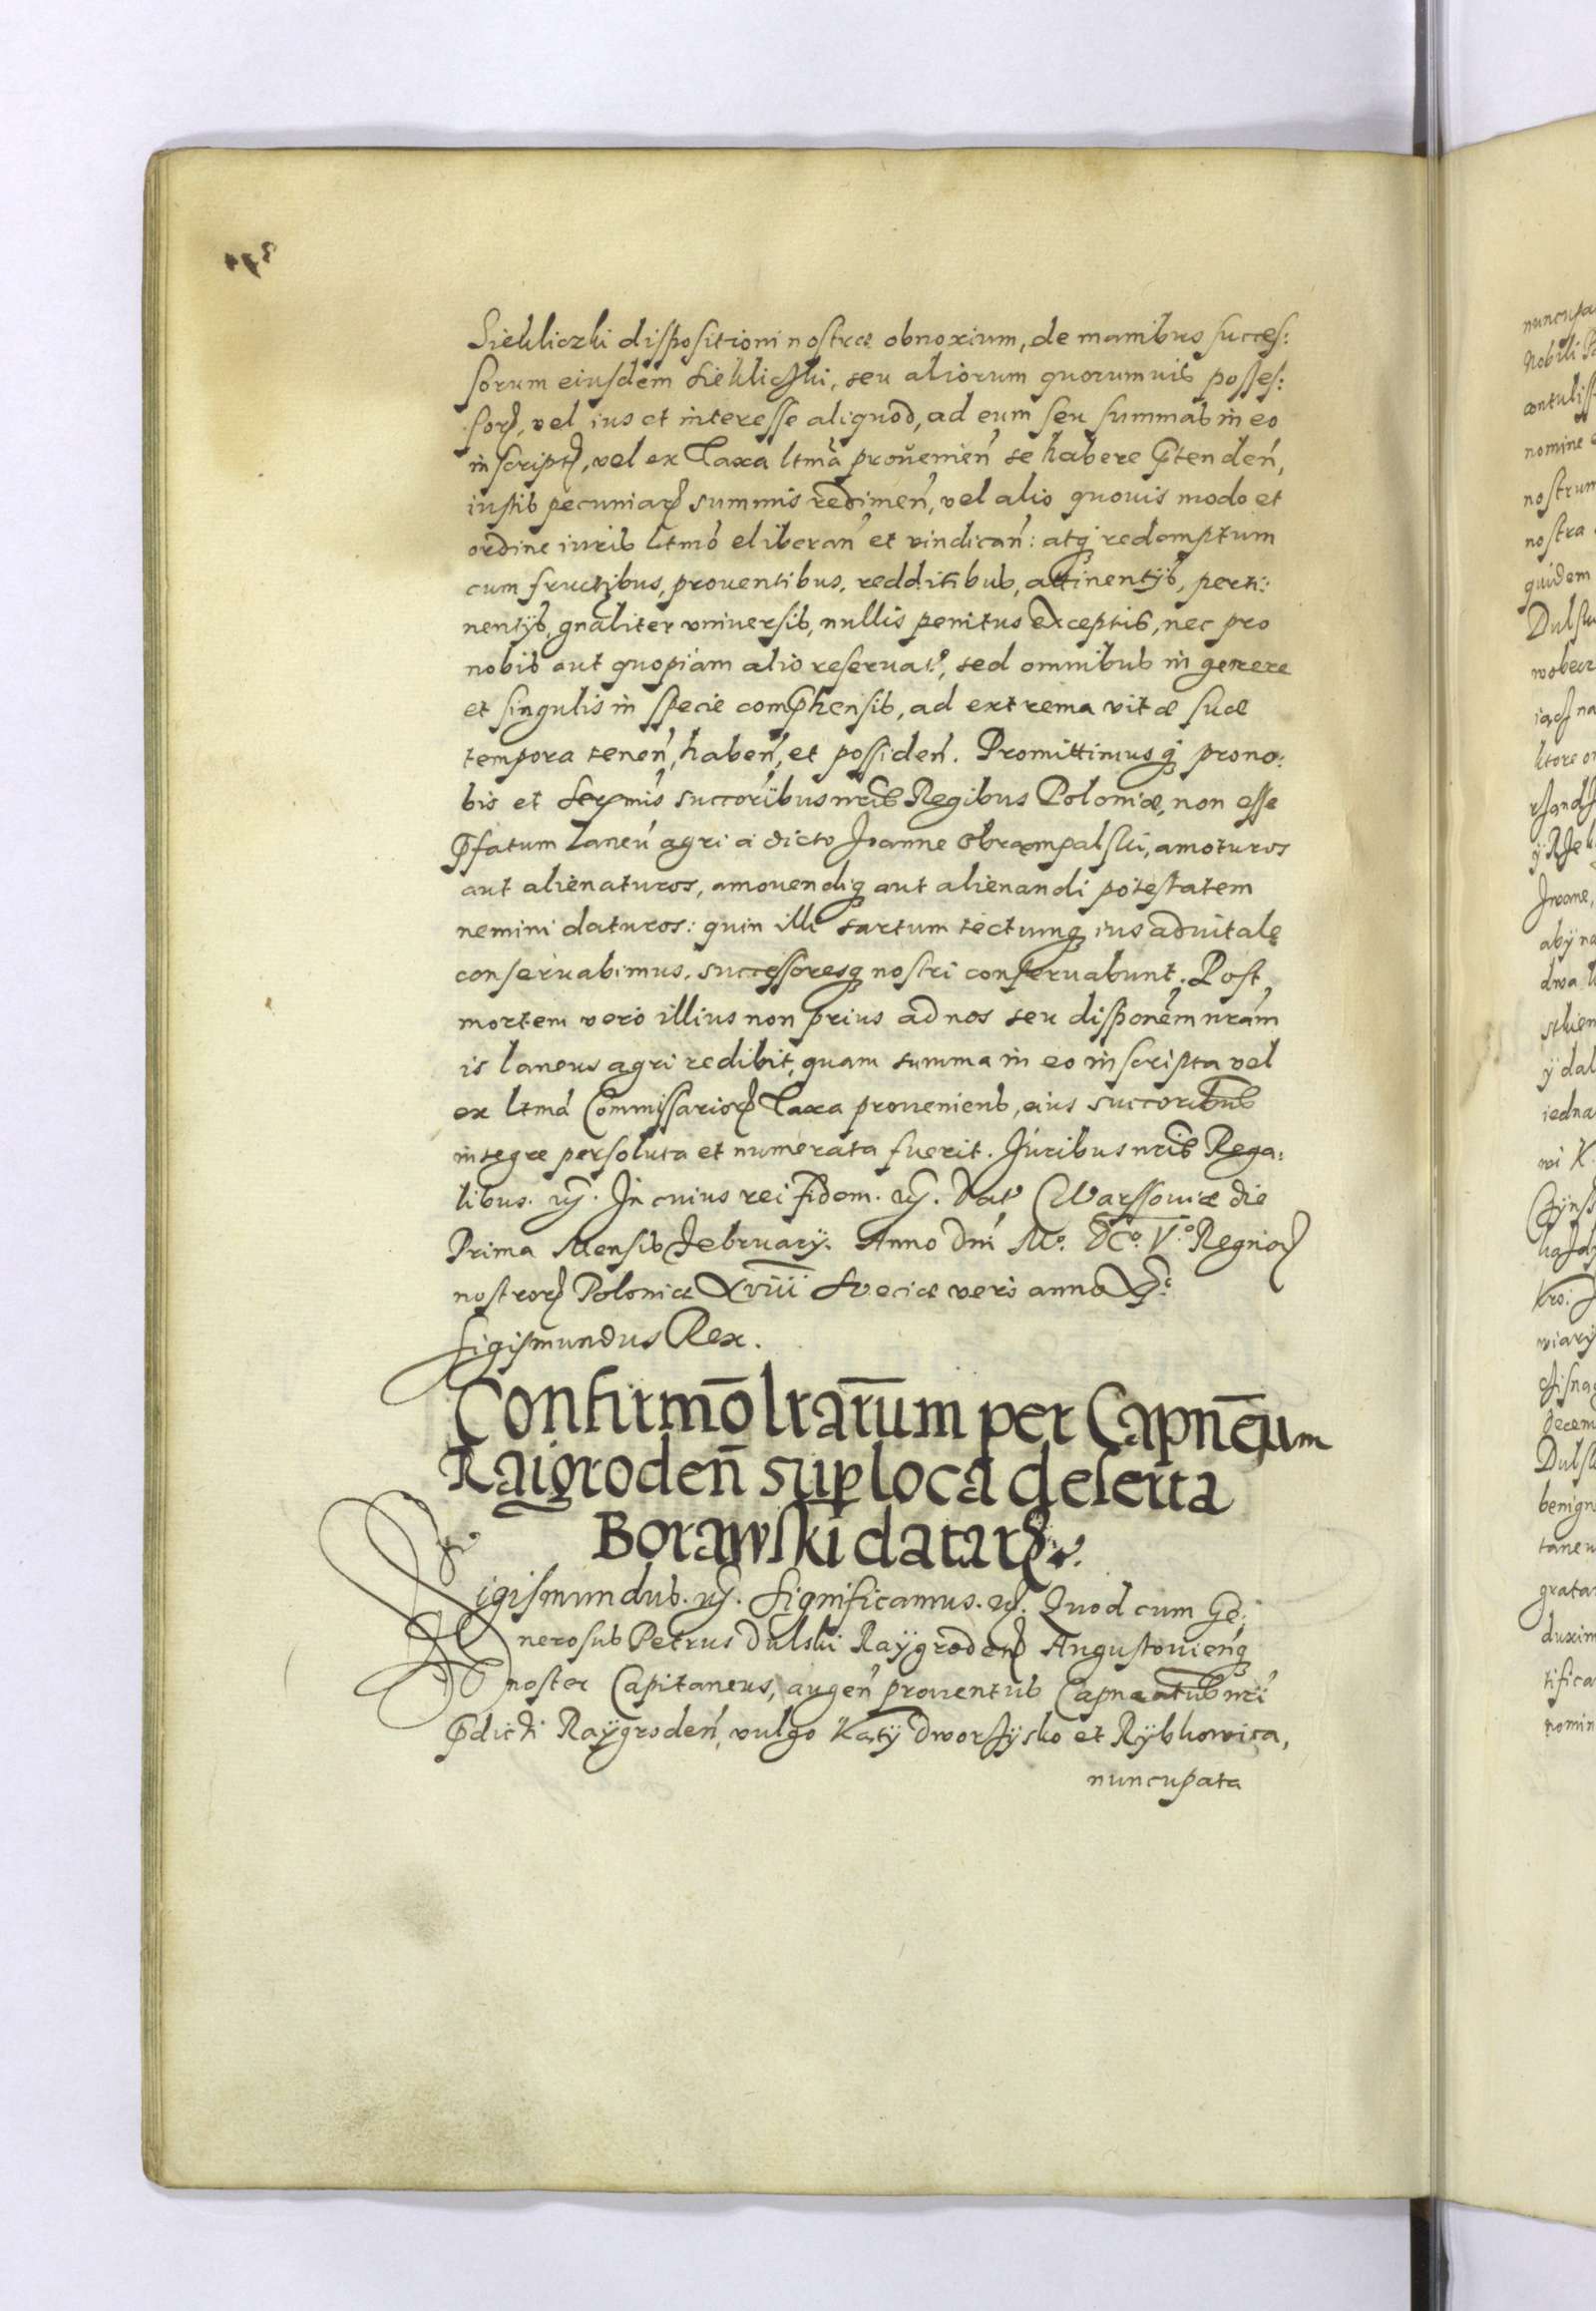 Siekliczki dispositioni nostræ obnoxium, de manibus succes:
sorum eiusdem Siekliczki, seu aliorum quorumuis posses:
sorꝝ, vel ius et interesse aliquod, ad eum seu summas in eo
inscriptꝭ, vel ex Taxa ltmã prouenień se habere p̃tendeń,
iustis pecuniarꝝ summis redimeń, vel alio quouis modo et
ordine iuris ltmõ eliberań et vindicań: atqꝫ redemptum
cum fructibus, prouentibus, redditibus, attinentijs, perti:
nentijs, gnãliter vniuersis, nullis penitus exceptis, nec pro
nobis aut quopiam alio reseruatꝭ, sed omnibus in genere
et singulis in specie comp̃hensis, ad extrema vitæ suæ
tempora teneń, habeń, et possideń. Promittimusqꝫ prono:
bis et Serẽmis succoribus nr̃is Regibus Poloniæ, non esse
p̃fatum Laneũ agri a dicto Joanne Obrąmpalski, amoturos
aut alienaturos, amouendiqꝫ aut alienandi potestatem
nemini daturos: quin illi sartum tectumqꝫ ius aduitale
conseruabimus, successoresqꝫ nostri conseruabunt. Post
mortem vero illius non prius ad nos seu disponẽm nrãm
is laneus agri redibit, quam summa in eo inscripta vel
ex ltmã Commissariorꝝ Taxa proueniens, eius succoribus
integre persoluta et numerata fuerit. Juribus nr̃is Rega:
libus. ꝛc̃. In cuius rei fidem. ꝛc̃. Datꝭ Warssouiæ die
Prima Mensis February. Anno Dnĩ Mº. DCº. Vº. Regnorꝝ
nostrorꝝ Poloniæ XVIII Sveciæ vero anno XIº
Sigismundus Rex.
Confirmõ lrarũm per Capnẽum
Raigrodeñ sup̱ loca deserta
Borawski datarꝝ.
Sigismundus. ꝛc̃. Significamus. ꝛc̃. Quod cum Ge:
nerosus Petrus Dulski Raÿgrodenꝭ Augustouieńqꝫ
noster Capitaneus, augeń prouentus Capnaeatus nr̃i
p̃dicti Raÿgrodeń, vulgo Katÿ Dworzÿsko et Rÿbkowica,
nuncupata